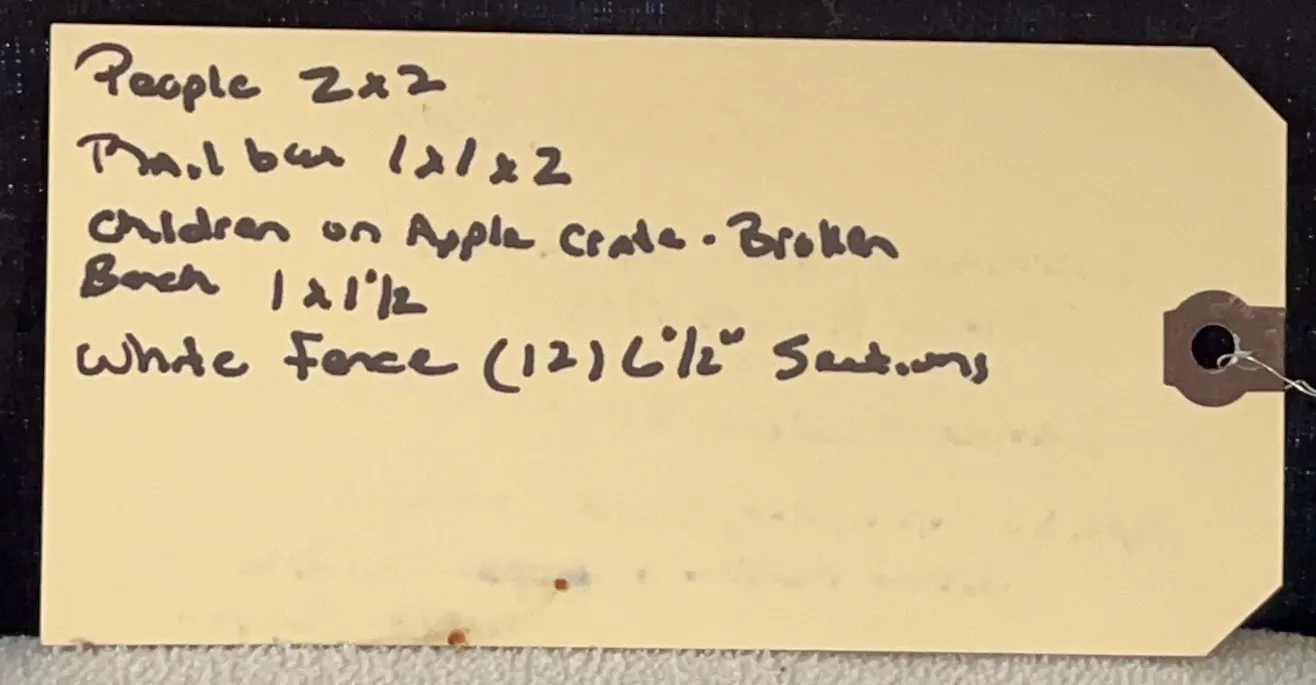 People 2x2
Mail box 1x1x2
Children on Apple Crate. Broken
Bench 1x1 1/2
White Fence (12) 6 1/2" Sections